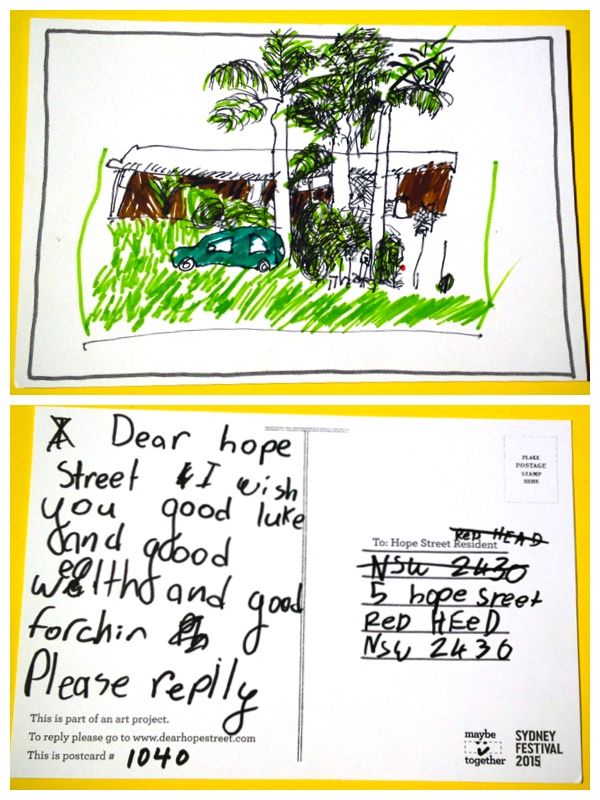 Dear hope
Street I wish
you good luke
and goood
wealthy and good
forchin
Please replly
This is part of an art project.
To reply please go to www.dearhopestreet.com
This is postcard # 1040
PLACE
POSTAGE
STAMP
HERE
RED HEAD
To: Hope Street Resident
NSW 2430
5 hope sreet
RED HEED
NSW 2430
maybe
together
SYDNEY
FESTIVAL
2015